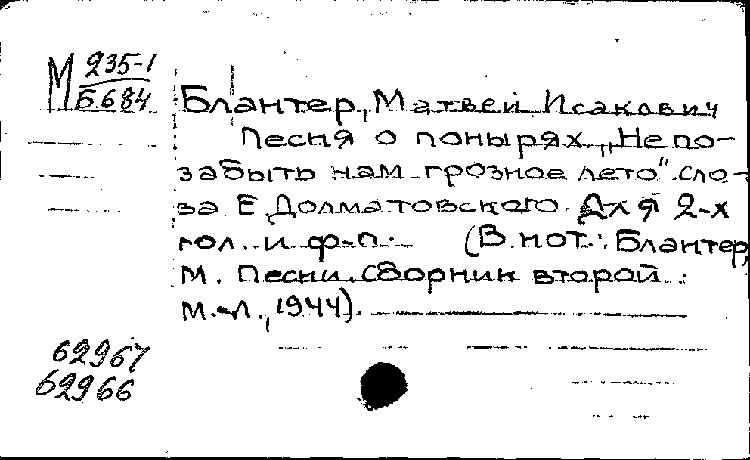 М 235-1
Б684
Блантер, Матвей Исакович
Песня о понырях „Не по-
забыть нам грозное лето". Сло-
ва Е. Долматовского. Для 2-х
гол. и ф-п. (В нот.: Блантер,
М. Песни. Сборник второй.
М.-Л., 1944).
62967
62966